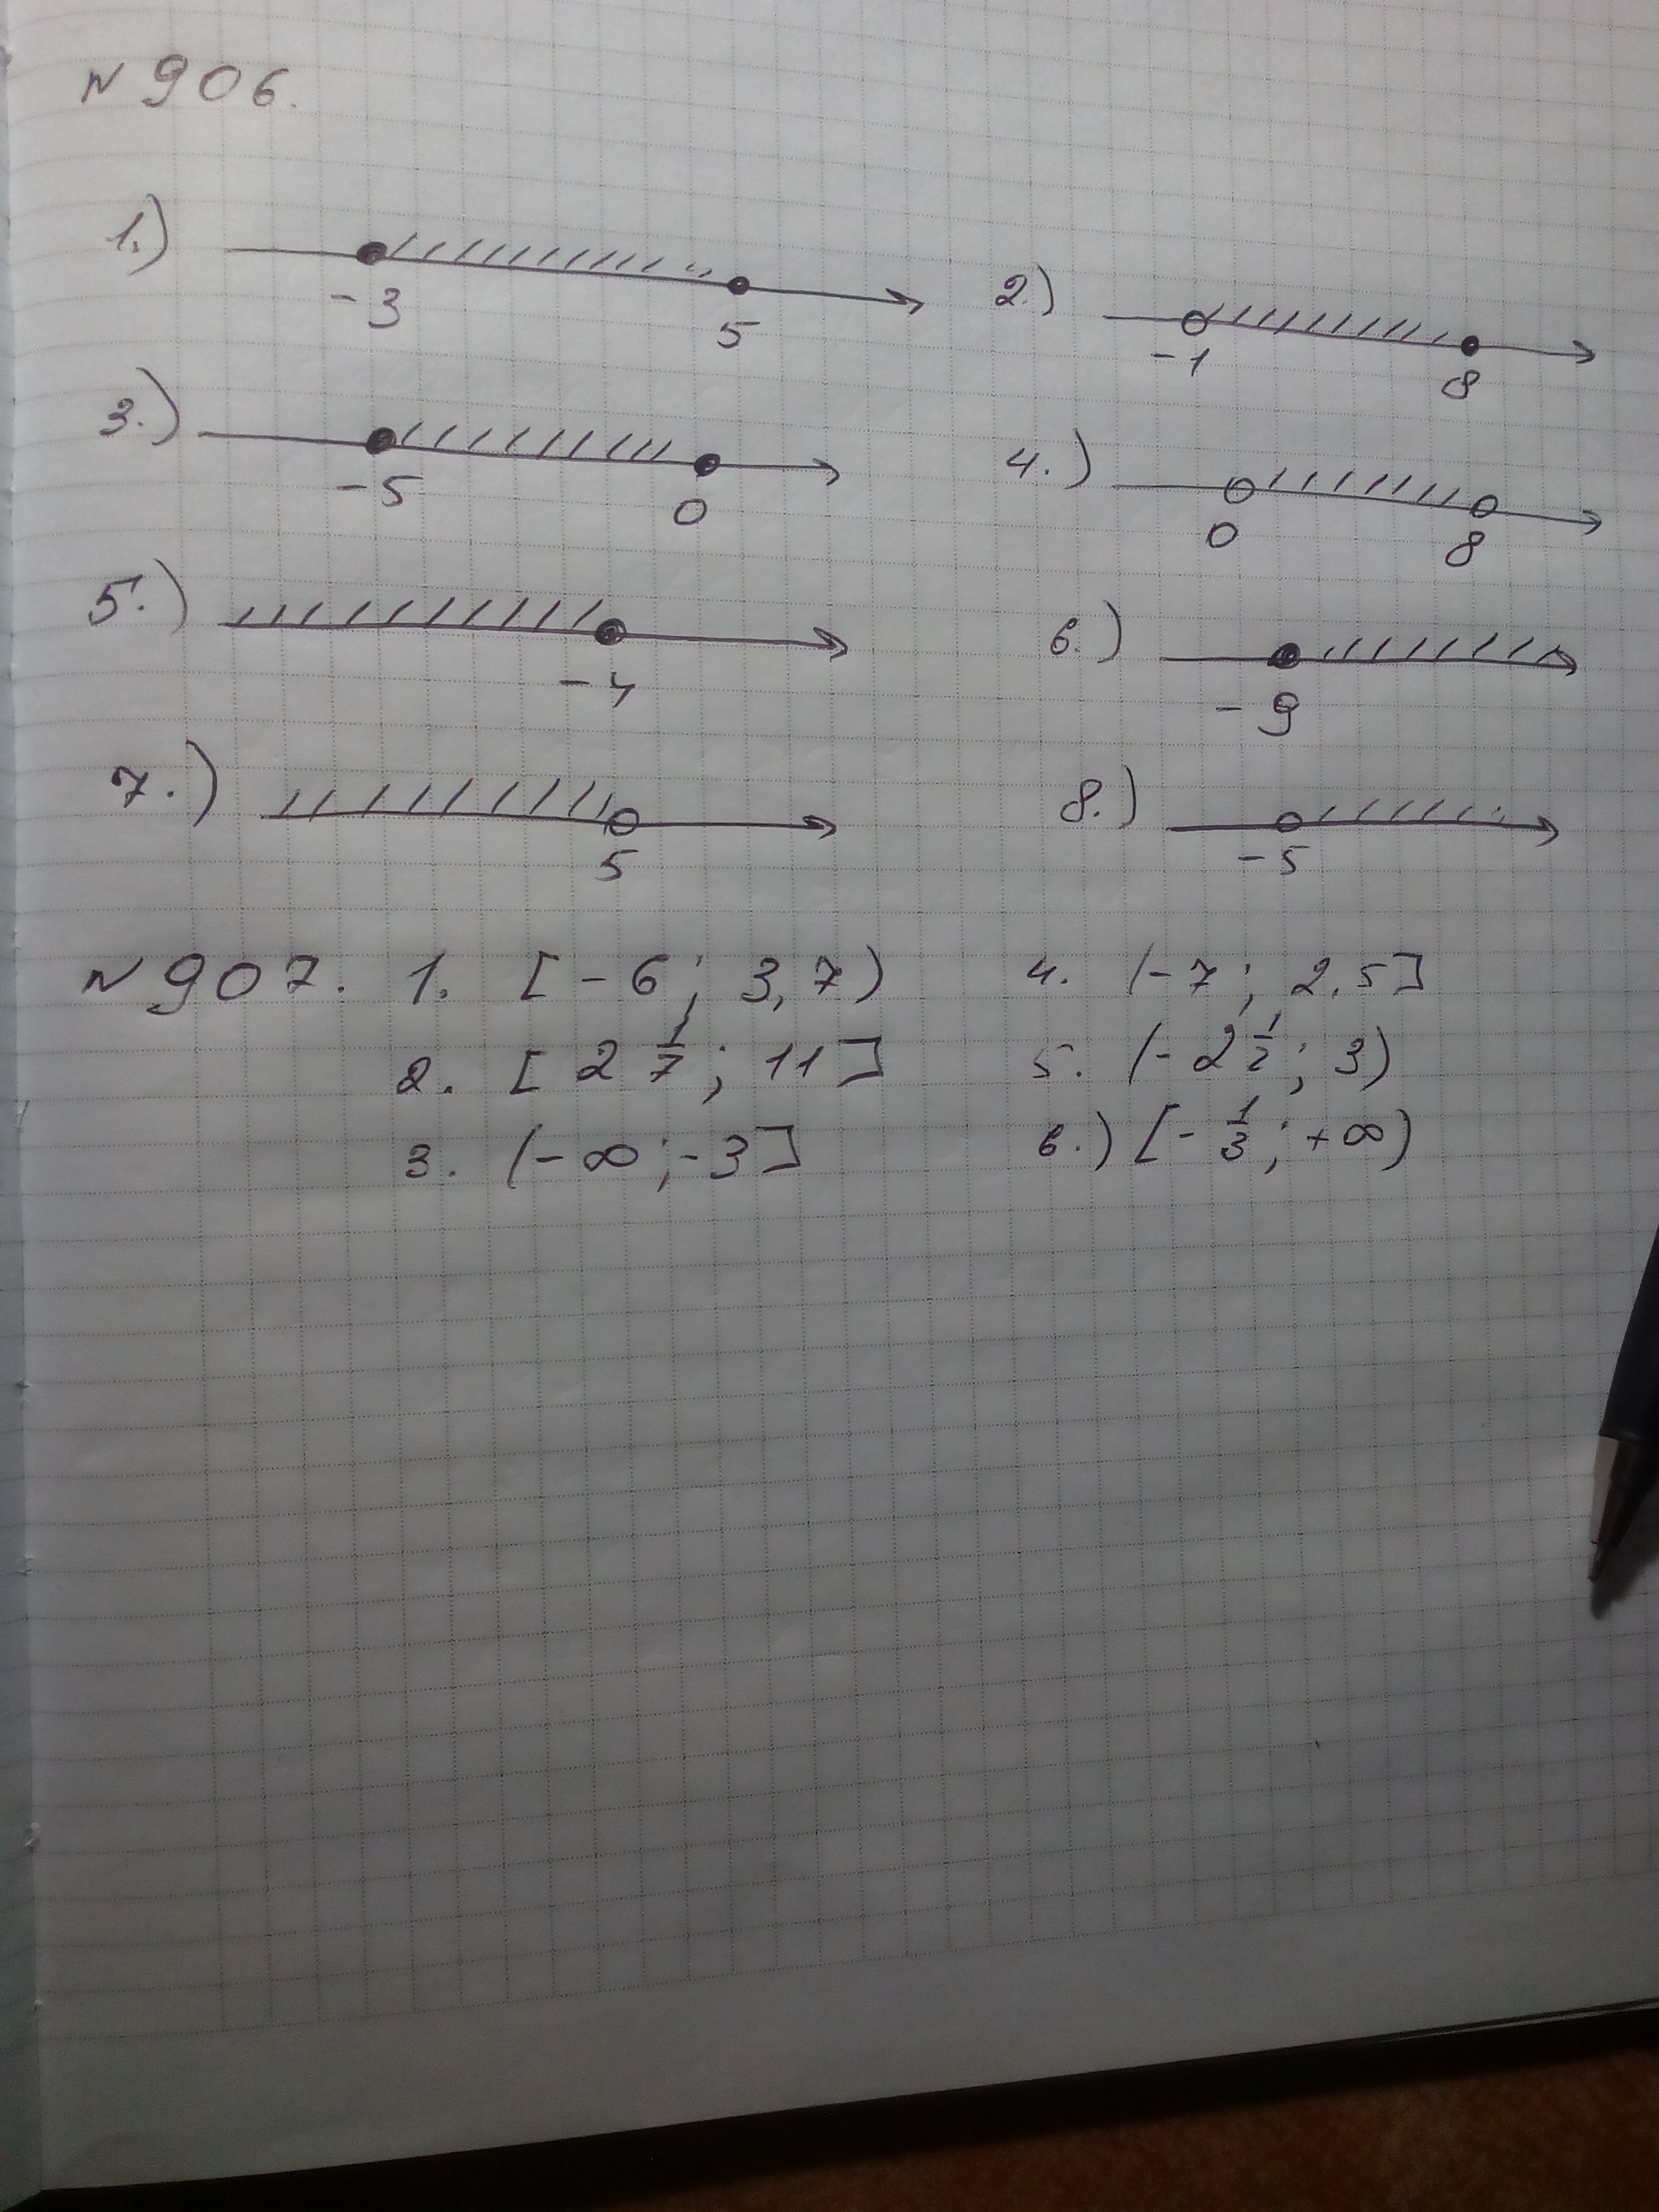 N 906.
1.) -3 5 2.) -1 8
3.) -5 0 4.) 0 8
5.) -4 6.) -9
7.) 5 8.) -5
N 907. 1. [-6; 3,7) 4. (-7; 2,5]
2. [2 1/7; 11] 5. (-2 1/2; 3)
3. (-∞; -3] 6.) [-1/3; +∞)